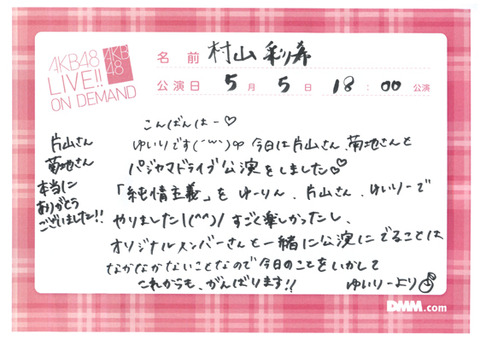 AKB48
LIVE!!
ON DEMAND
AKB
48
名 前 村山 彩希
公演日 5 月 5 日 18 : 00 公演
こんばんはー♡
ゆいりです(^ω^) 今日は片山さん、菊地さんと
パジャマドライブ公演をしました♡
「純情主義」を ゆーりん、片山さん、ゆいりーで
やりました!(^^)! すごく楽しかったし、
オリジナルメンバーさんと一緒に公演にでることは
なかなかないことなので今日のことをいかして
これからも、がんばります!!
ゆいりーより
片山さん
菊地さん
本当に
ありがとう
ございました!!
DMM.com